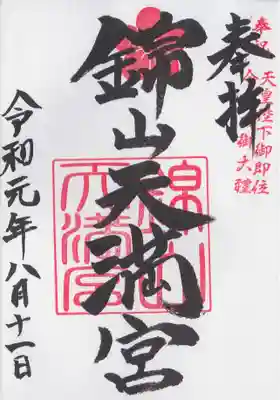 奉祝 天皇陛下御即位
御大禮
奉拝
錦山天満宮
錦山
天満宮
令和元年八月十一日